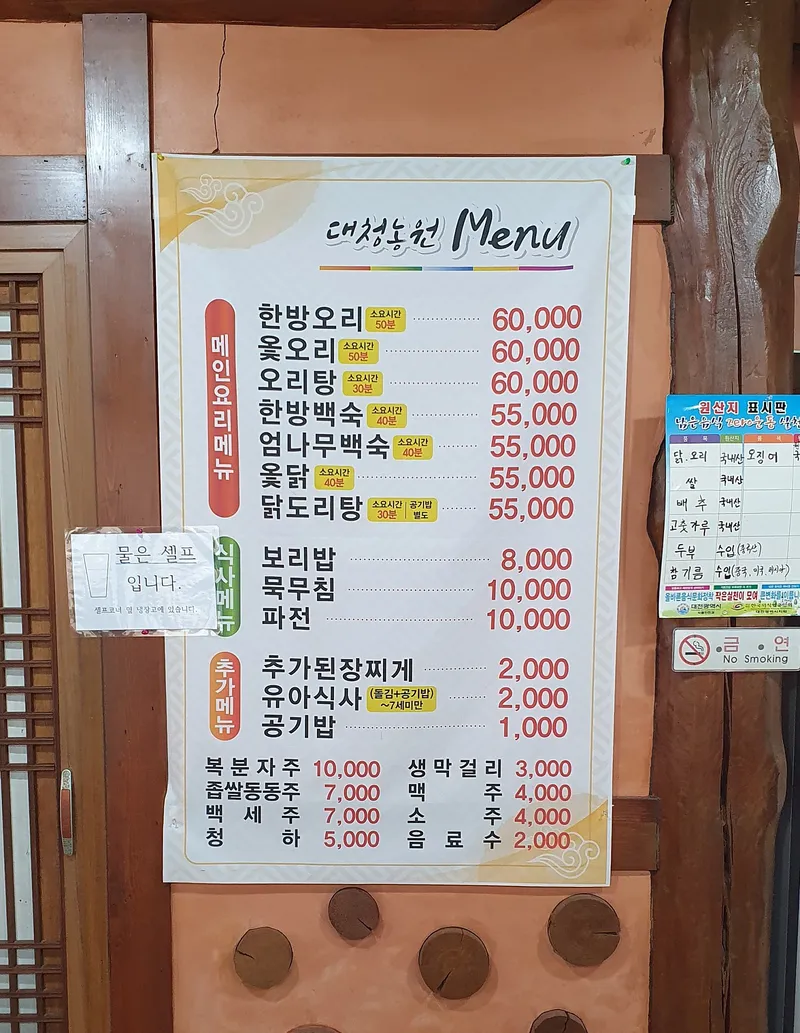 대청농원 Menu
메인요리메뉴
한방오리 소요시간 50분 60,000
옻오리 소요시간 50분 60,000
오리탕 소요시간 30분 60,000
한방백숙 소요시간 40분 55,000
엄나무백숙 소요시간 40분 55,000
옻닭 소요시간 40분 55,000
닭도리탕 소요시간 30분 공기밥 별도 55,000
식사메뉴
보리밥 8,000
묵무침 10,000
파전 10,000
추가메뉴
추가된장찌게 2,000
유아식사 (돌김+공기밥) ~7세미만 2,000
공기밥 1,000
복분자주 10,000 생막걸리 3,000
좁쌀동동주 7,000 맥주 4,000
백세주 7,000 소주 4,000
청하 5,000 음료수 2,000
물은 셀프
입니다.
셀프코너 옆 냉장고에 있습니다.
원산지 표시판
남은음식 zero운동
품목 원산지 품목
닭, 오리 국내산 오징어
쌀 국내산
배추 국내산
고춧가루 국내산
두부 수입
참기름 수입
올바른음식문화정착 작은실천이 모여
대전광역시
금연
No Smoking